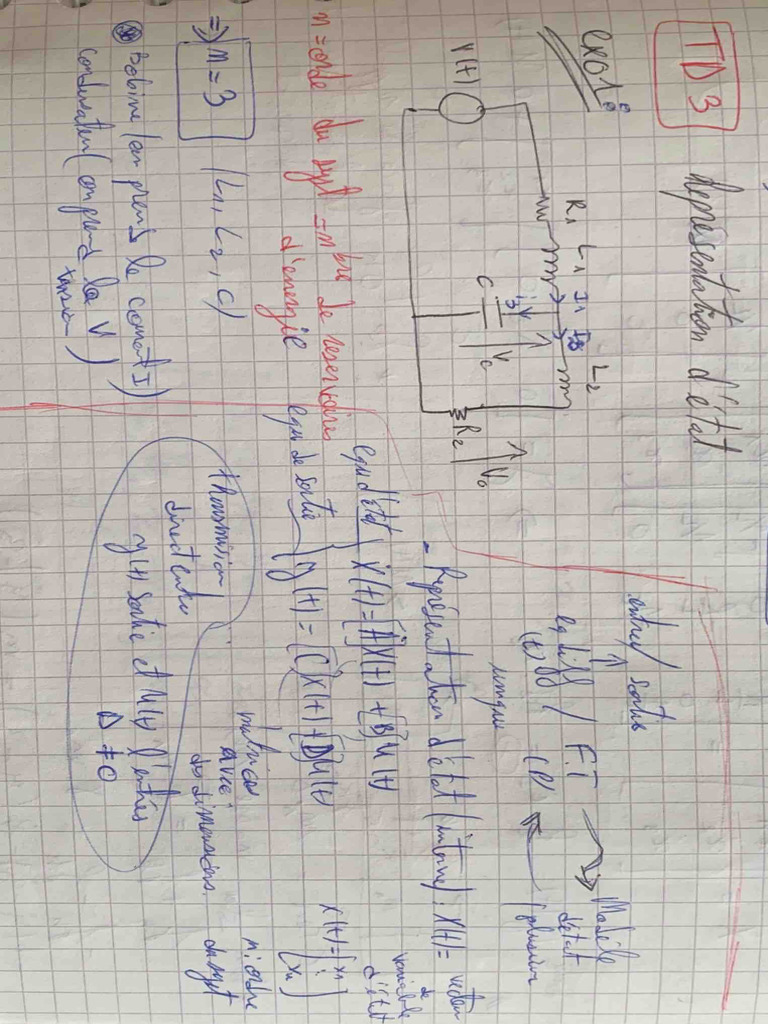 TD 3
Représentation d'état
exo 1:
V(t)
R1 L1 I1 I3 L2
i2
C
Vc
R2
V0
n = ordre du syst = nbre de reservoires
d'energie
=> n = 3 (L1, L2, C)
Bobine (on prend le courant I)
condensateur (on prend la V
tension)
entrée / sortie
eq diff / F.T
(t) (P)
unique
Modèle
d'état
plusieur
- Représentation d'état (interne) : X(t) = vecteur
de
variable
d'état
equ d'état X(t) = [A]X(t) + [B]U(t)
equ de sortie y(t) = [C]X(t) + [D]U(t)
X(t) = (x1 : xn)
matrices
avec
des dimensions.
n: ordre
du syst
transmission
direct entre
y(t) sortie et U(t) l'entrée
D ≠ 0